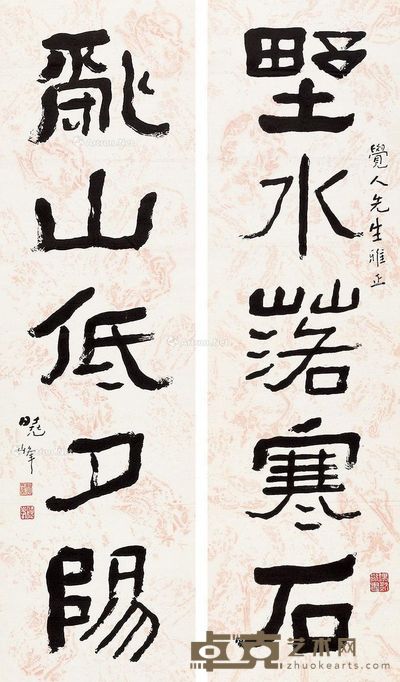 覺人先生雅正
野水落寒石
亂山低夕陽
曉峰
卓克艺术网
zhuokearts.com